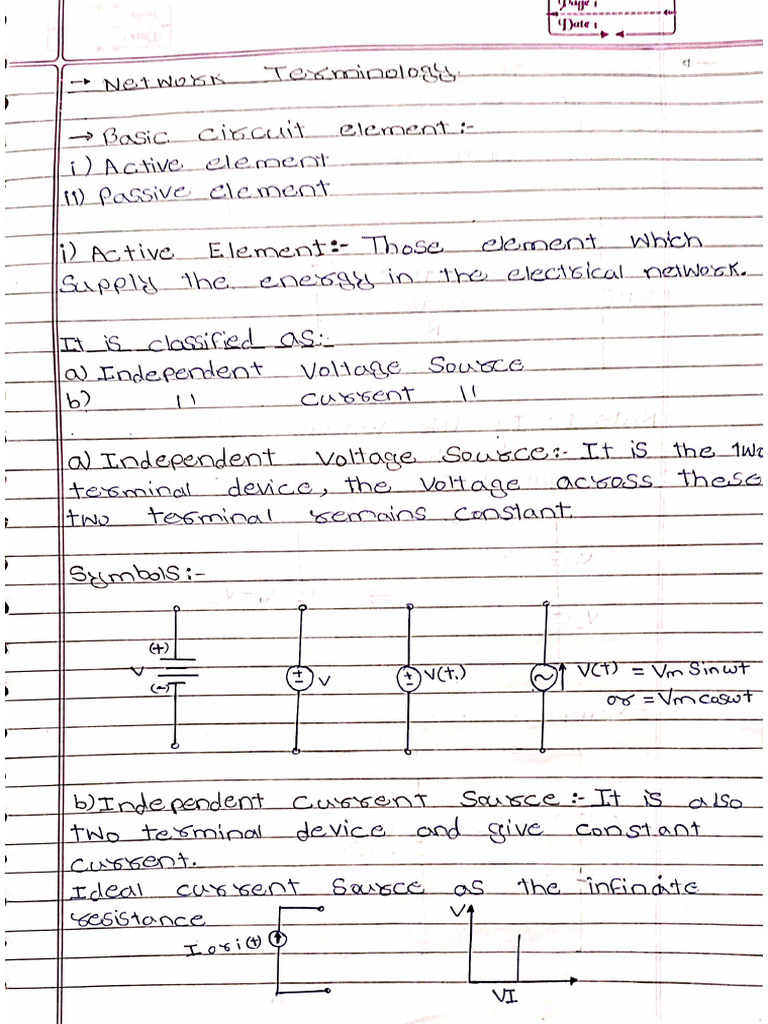 Page :
Date :
→ Network Terminology.
→ Basic circuit element :-
i) Active element
ii) Passive element
i) Active Element:- Those element which
supply the energy in the electrical network.
It is classified as:-
a) Independent Voltage Source
b) 11 current 11
a) Independent Voltage Source:- It is the two
terminal device, the voltage across these
two terminal remains constant.
Symbols:-
(+)
V
(-)
+
-
V
+
-
V(t.)
V(t) = Vm Sinωt
or = Vm cosωt
b) Independent Current Source :- It is also
two terminal device and give constant
current.
Ideal current Source as the infinate
resistance
I or i(t)
V
VI